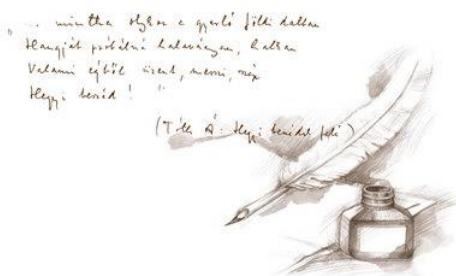 „... mintha olykor e gyarló földi dalban
Hangját próbálná halaványan, halkan
Valami égből üzent, messzi, szép
Hegyi beszéd! "
(Tóth Á. Hegyi beszédek felé)